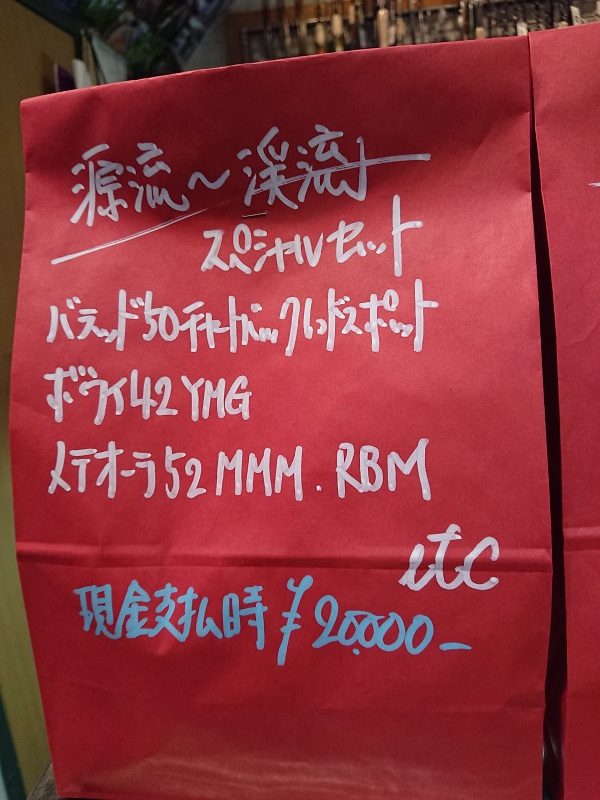 源流~渓流
スペシャルセット
バラッド50チャートバックレッドスポット
ボウイ42YMG
メテオーラ52MMM.RBM
etc
現金支払時¥20,000-